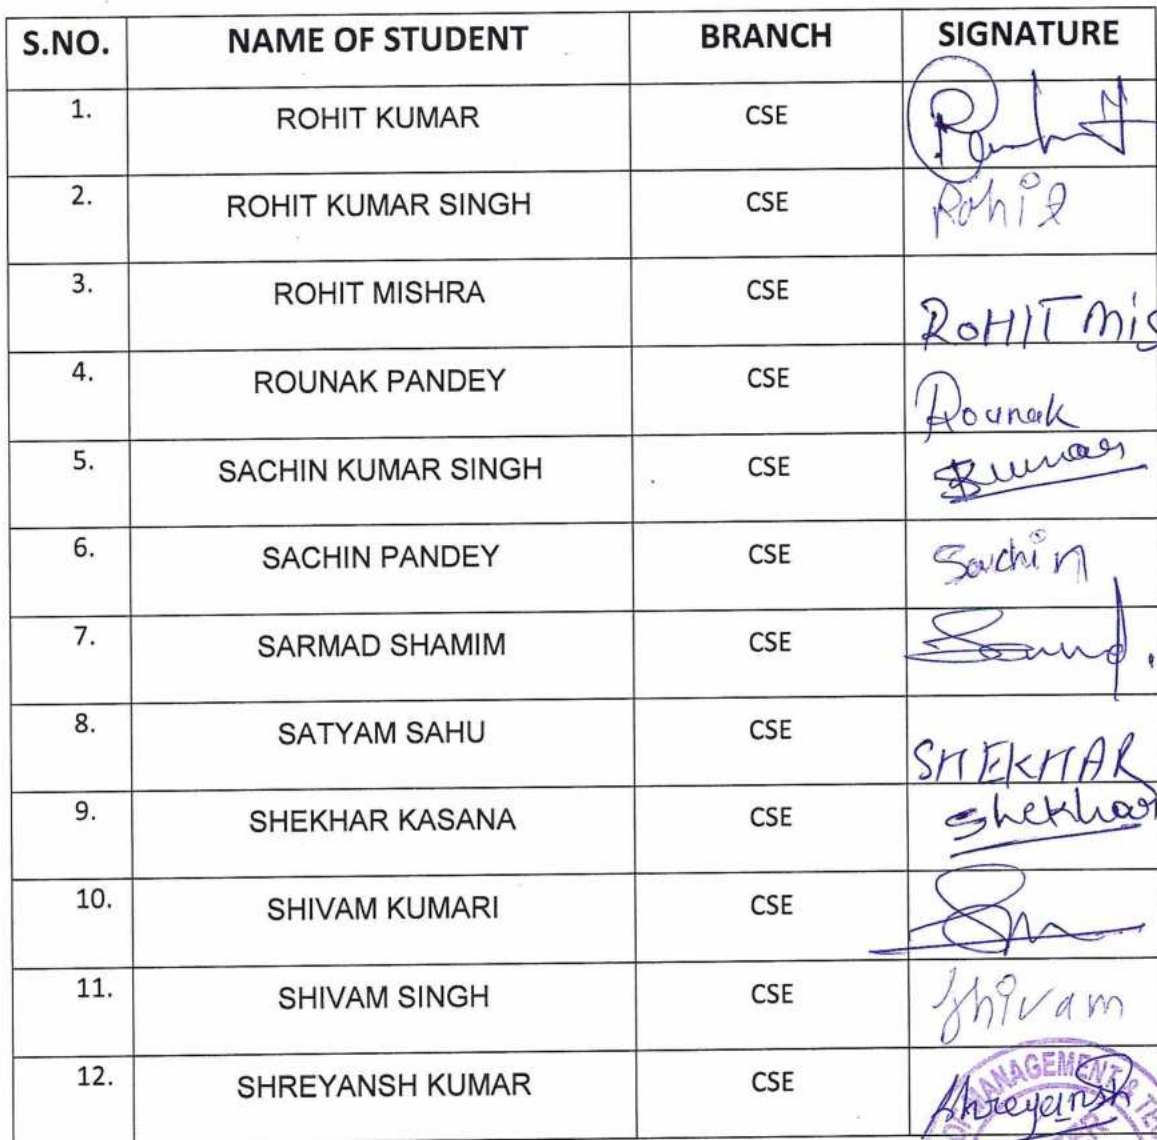 S.NO. NAME OF STUDENT BRANCH SIGNATURE
1. ROHIT KUMAR CSE
2. ROHIT KUMAR SINGH CSE Rohit
3. ROHIT MISHRA CSE ROHIT Mis
4. ROUNAK PANDEY CSE Rounak
5. SACHIN KUMAR SINGH CSE SKumar
6. SACHIN PANDEY CSE Sachin
7. SARMAD SHAMIM CSE
8. SATYAM SAHU CSE SHEKHAR
9. SHEKHAR KASANA CSE Shekhar
10. SHIVAM KUMARI CSE
11. SHIVAM SINGH CSE Shivam
12. SHREYANSH KUMAR CSE Shreyansh
MANAGEMENT &